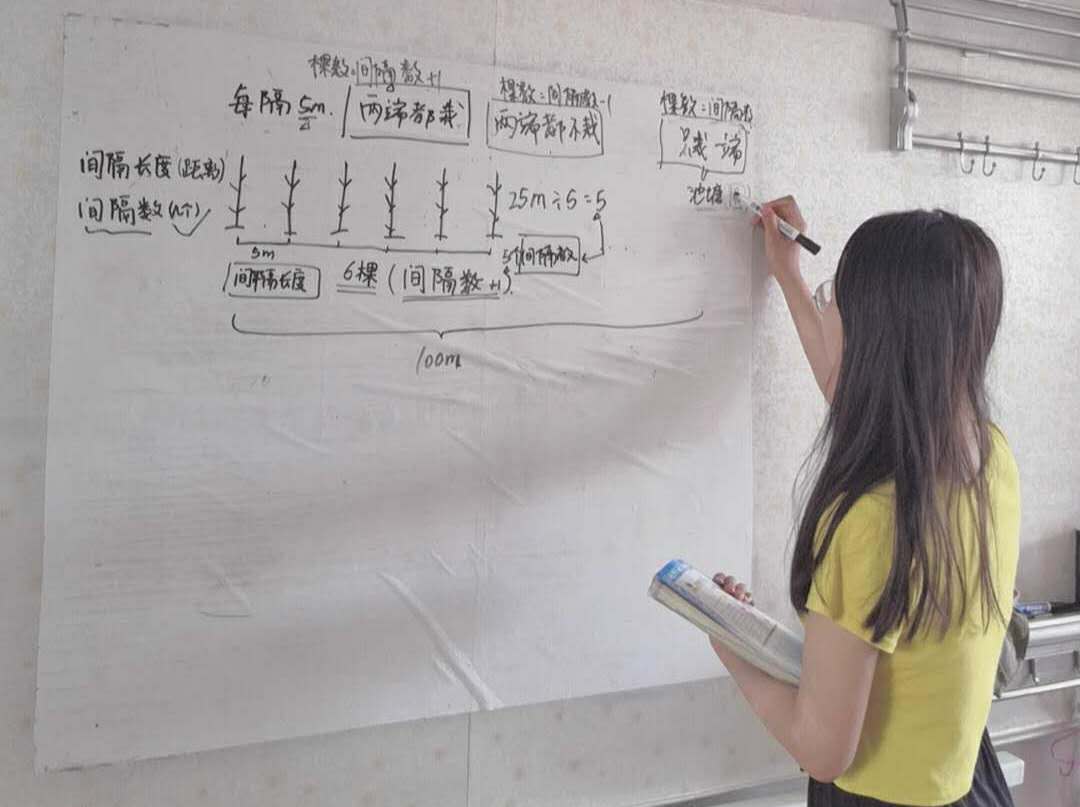 棵数=间隔数+1
棵数=间隔数-1
棵数=间隔数
每隔5m.
两端都栽
两端都不栽
只栽一端
池塘
间隔长度(距离)
间隔数(个)
25m÷5=5
5m
间隔长度
6棵(间隔数+1).
5个间隔数
100m